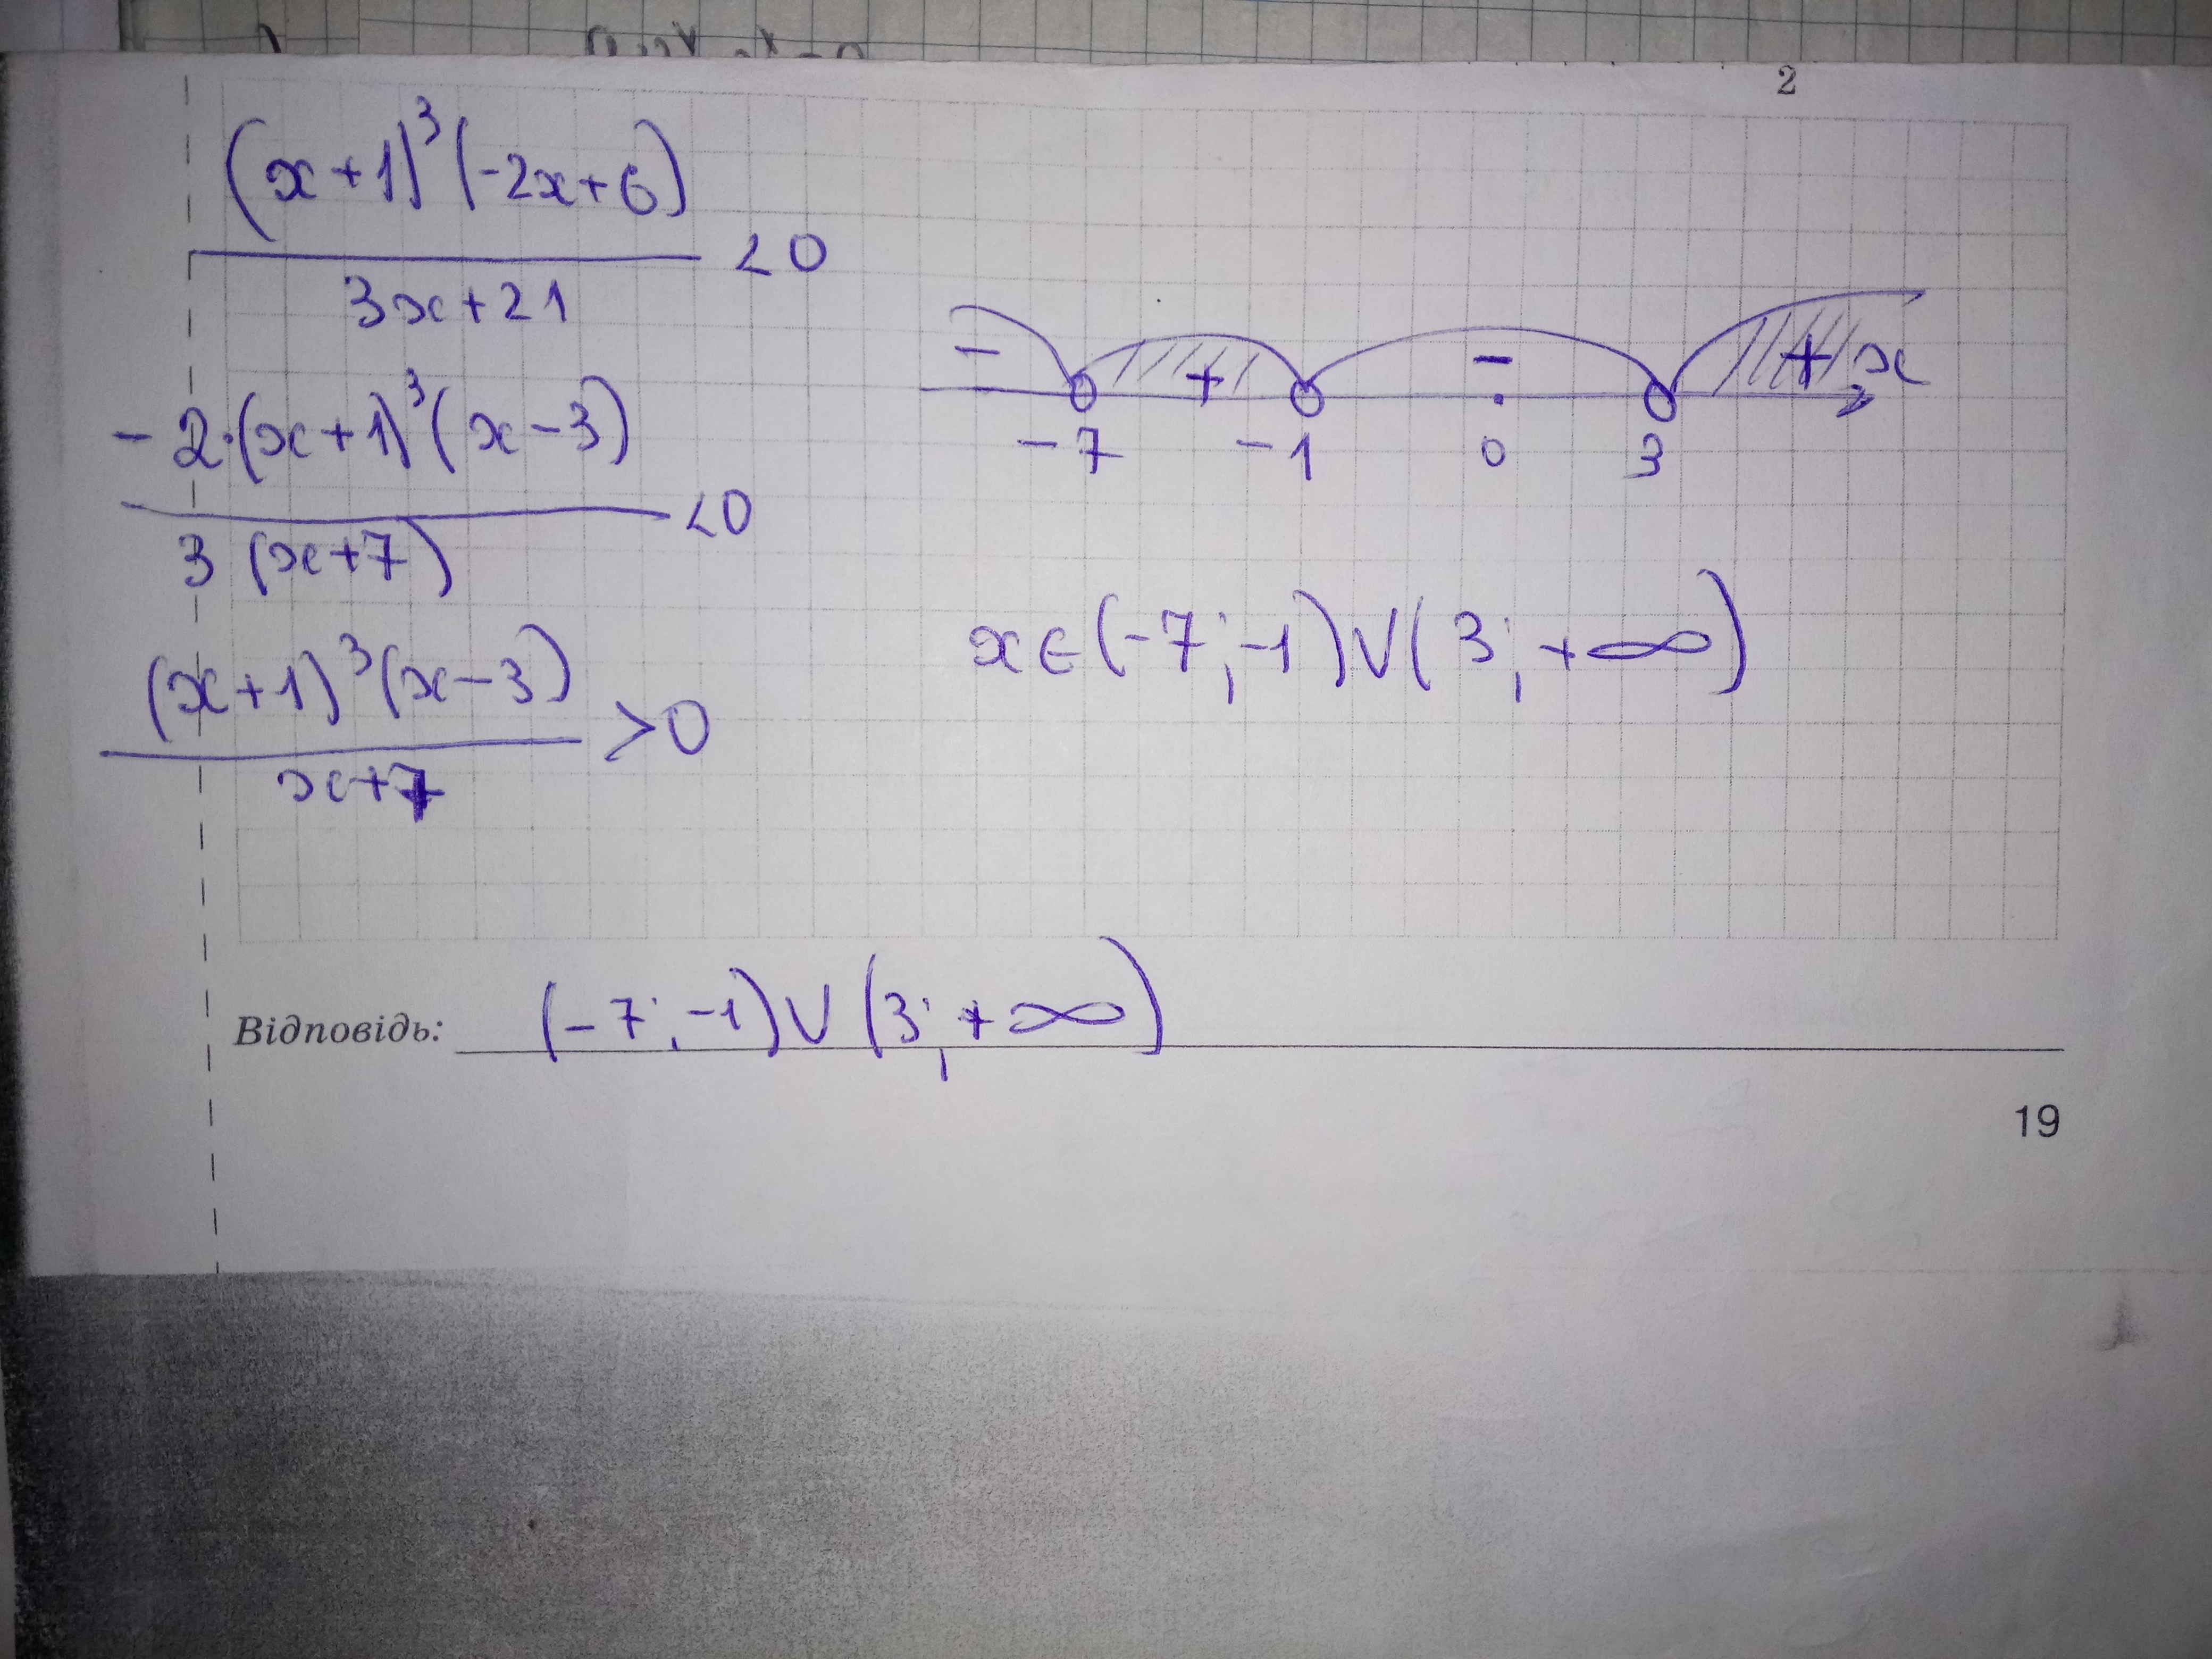 2
(x+1)³(-2x+6)
<0
3x+21
-2·(x+1)³(x-3)
<0
3(x+7)
(x+1)³(x-3)
>0
x+7
- + - + x
-7 -1 0 3
x∈(-7;-1)∨(3;+∞)
Відповідь: (-7;-1)∨(3;+∞)
19